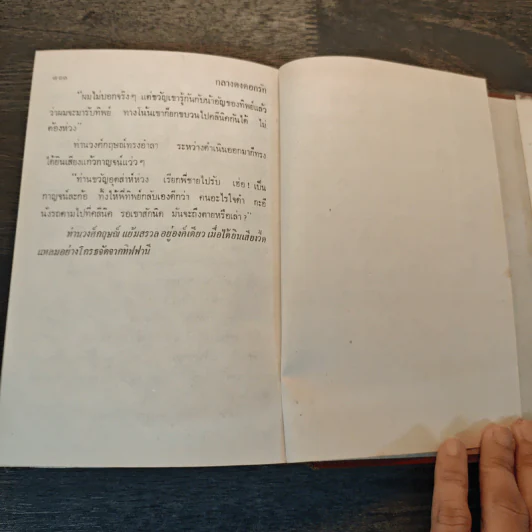 ๑๑๑
กลางดงดอกรัก
"ผมไม่บอกจริงๆ แต่ขวัญเขารู้กันกับน้าอัญของทิพย์แล้ว
ว่าผมจะมารับทิพย์ ทางโน้นเขาก็ยกขบวนไปคลินิคกันได้ ไม่
ต้องห่วง"
ท่านวงศ์กฤษณ์ทรงอำลา ระหว่างดำเนินออกมาก็ทรง
ได้ยินเสียงแก้วกาญจน์แว่วๆ
"ท่านขวัญอุตส่าห์ห่วง เรียกพี่ชายไปรับ เฮ่อ! เป็น
กาญจน์ละก้อ ทิ้งให้พี่ทิพย์กลับเองดีกว่า คนอะไรใจดำ กะอี
นั่งรถตามไปที่คลีนิค รอเขาสักนิด มันจะถึงตายหรือเล่า?"
ท่านวงศ์กฤษณ์ แย้มสรวล อยู่องค์เดียว เมื่อได้ยินเสียงวี้ด
แหลมอย่างโกรธจัดจากทิฟฟานี่